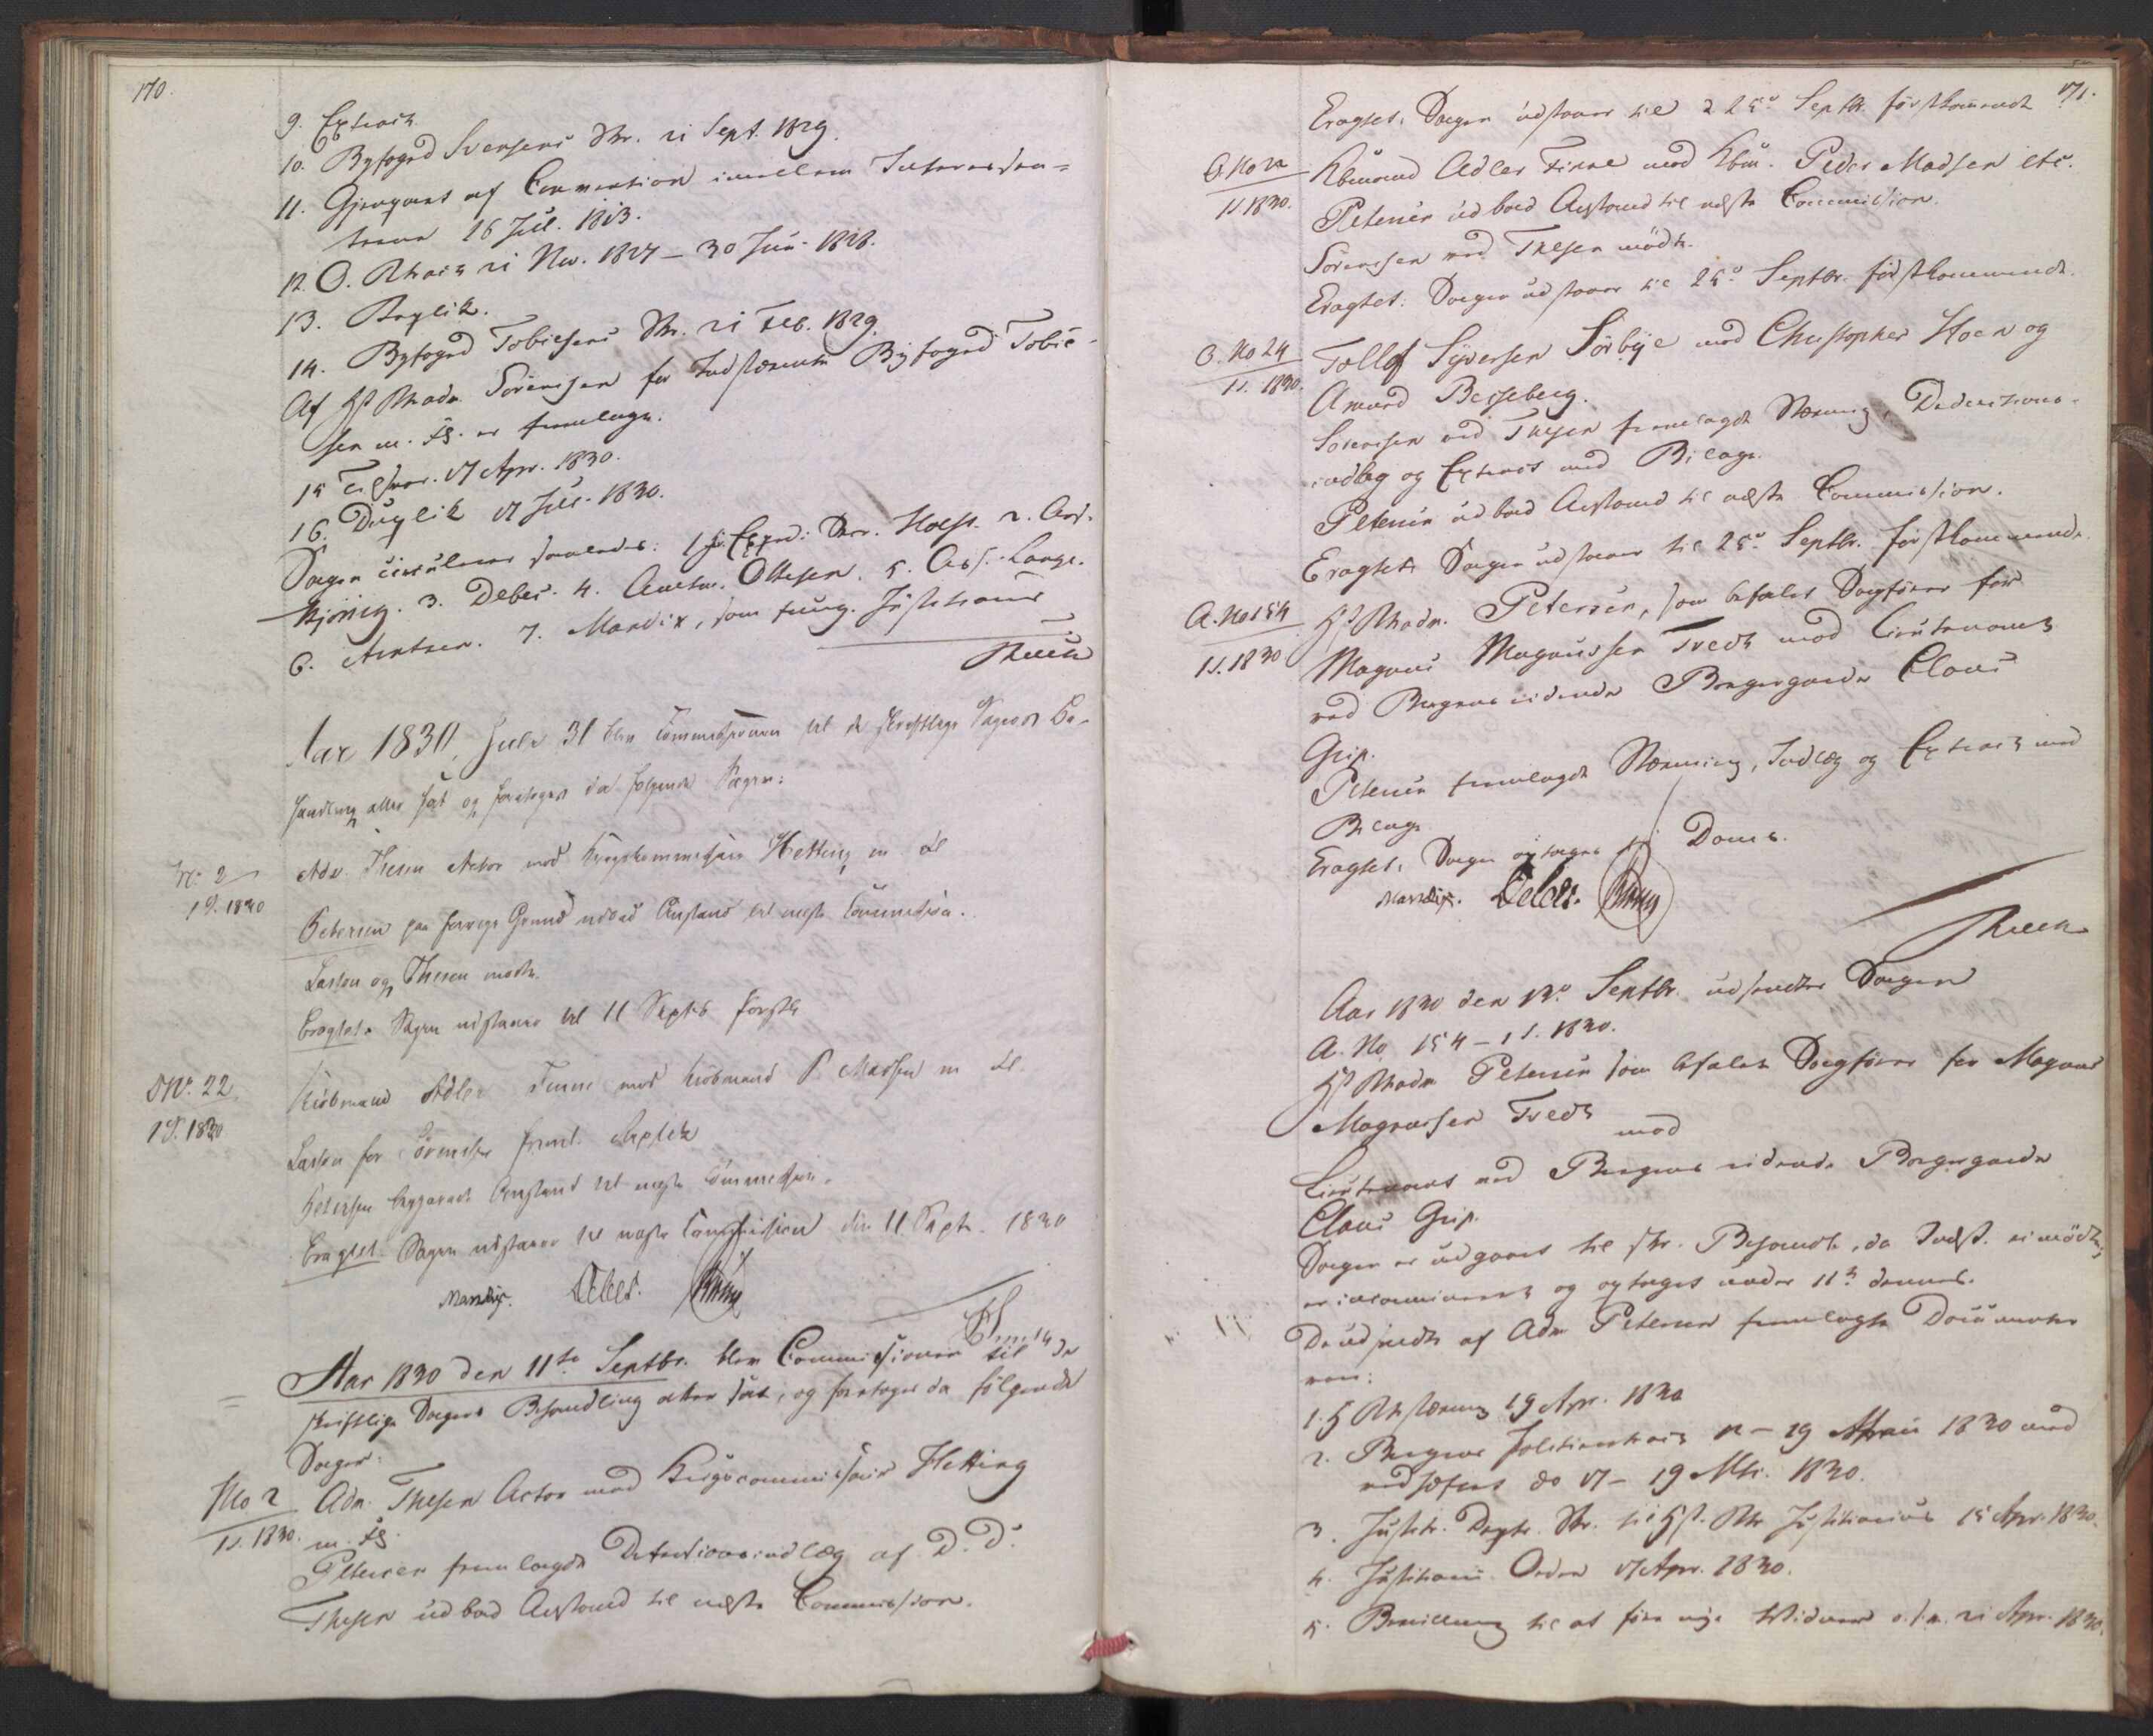 170.
9. Extract.
10. Byfoged Svensens Skr. 21 Sept. 1829.
11. Gjenpart af Convention imellem Interessen-
terne 16 Jul. 1813.
12. O. Rkart 21 Nov. 1827 – 30 Jun. 1828.
13. Replik.
14. Byfoged Tobiesens Skr. 21 Feb. 1829.
Af HstRkadv. Sörensen for Indstævnte Byfoged Tobie-
sen m. fl. er fremlagt:
15 Tilsvar. 17 Apr. 1830.
16. Duplik 17 Jul. 1830.
Sagen circulerer saaledes: 1. Expd: Skr. Holst. 2. Ass.
Kjönig. 3. Debes. 4. Auditør Ottesen. 5. Ass. Lange.
6. Arntzen. 7. Mandix, som fung. Justitiarius
Aar 1830, Juli 31 blev Commissionen til de skriftlige Sagers Be-
handling atter sat og foretoges da følgende Sager:
Nr. 2
1 S. 1830
Adv. Thesen Actor mod Krigskommissair Hetting m fl
Petersen paa forrige Grund udbad Anstand til næste Commission.
Lasson og Thesen mødte.
Eragtet: Sagen udstaaer til 11 Septb førstk
Nr. 22
1 S. 1830
Kiöbmand Adler Finne mod Kiöbmand P Madsen m fl.
Lasson for Sörensen freml. Replik
Petersen begjærede Anstand til næste Commission.
Eragtet. Sagen udstaaer til næste Commission den 11 Sept. 1830
Mandix. Debes.
Aar 1830 den 11te Septbr. blev Commissionen til de
skriftlige Sagers Behandling atter sat, og foretoges da følgende
Sager:
No 2
1 S. 1830.
Adv. Thesen Actor mod Krigscommissair Hetting
m. fl.
Petersen fremlagde Defensionsindlæg af D. D.
Thesen udbad Anstand til næste Commission.
171.
Eragtet: Sagen udstaaer til 25de Septbr. førstkommende
No 22
1 S. 1830.
Kbmand Adler Finne mod Kbm. Peder Madsen etc.
Petersen udbad Anstand til næste Commission.
Sörensen ved Thesen mødte.
Eragtet: Sagen udstaaer til 25de Septbr. førstkommende.
No 24
1 S. 1830.
Tollef Syversen Sörbye mod Christopher Hoen og
Amund Besseberg.
Sörensen ved Thesen fremlagde Stævning, Deductions-
indlæg og Extract med Bilage.
Petersen udbad Anstand til næste Commission.
Eragtet: Sagen udstaaer til 25de Septbr. førstkommende.
A. No 154
1 S. 1830
HstRkadv. Petersen, som befalet Sagfører for
Magnus Magnussen Tvedt mod Lieutenant
ved Bergens ridende Borgergarde Claus
Grip.
Petersen fremlagde Stævning, Indlæg og Extract med
Bilage.
Eragtet: Sagen optages til Doms.
Mandix. Debes.
Aar 1830 den 12te Septbr. udsendtes Sagen
A. No 154 – 1 S. 1830.
HstRkadv Petersen som befalet Sagfører for Magnus
Magnussen Tvedt
mod
Lieutenant ved Bergens ridende Borgergarde
Claus Grip.
Sagen er udgaaet til skr. Behandl., da Indst. ei mødte,
er incamineret og optaget under 11te dennes.
De udsendte af Adv Petersen fremlagte Documenter
vare:
1. HRkstævning 19 Apr. 1830
2. Bergens Politieextract 12 – 29 Marts 1830 med
vedhæftet do 17 – 19 Mts. 1830.
3. Justits. Depts. Skr. til Hst. Rts Justitiarius 15 Apr. 1830.
4. Justitiarii Orden 17 Apr. 1830.
5. Bevilling til at føre nye Vidner o.s.v. 21 Apr. 1830.